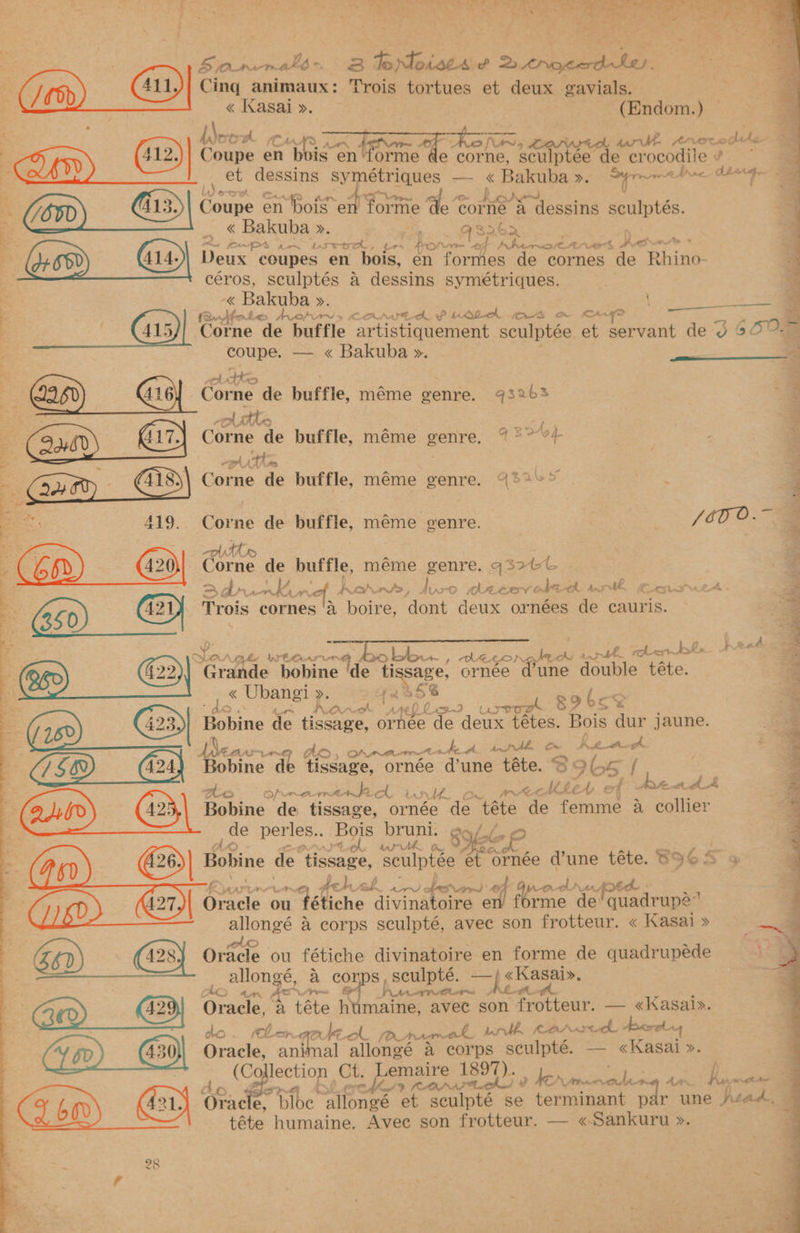 5 animals - 3 Tortoises & 2 crocodiles.
(160) (411.) Cinq animaux: Trois tortues et deux gavials.
« Kasai ». (Endom.)
(412.) Coupe en bois en forme de corne, sculptée de crocodile
et dessins symétriques — « Bakuba ».
(413.) Coupe en bois en forme de corne à dessins sculptés.
« Bakuba ». 93262
(414.) Deux coupes en bois, en formes de cornes de Rhino-
céros, sculptés à dessins symétriques.
« Bakuba ».
(415) Corne de buffle artistiquement sculptée et servant de
coupe. — « Bakuba ».
ditto
(416) Corne de buffle, même genre. 93263
ditto
(417.) Corne de buffle, même genre. 93264
ditto
(418.) Corne de buffle, même genre. 93265
419. Corne de buffle, même genre.
ditto
(420.) Corne de buffle, même genre.
3 drinking horns, two decorated with cowries.
(350) (421) Trois cornes à boire, dont deux ornées de cauris.
Large weaving bobbin, decorated with double head
(422.) Grande bobine de tissage, ornée d'une double tête.
« Ubangi ».
(1250) (423.) Bobine de tissage, ornée de deux têtes. Bois dur jaune.
Weaving do, ornamented with a head
(424) Bobine de tissage, ornée d'une tête. 8965
do ornamented with a necklet of beads
(425.) Bobine de tissage, ornée de tête de femme à collier
de perles.. Bois bruni.
(426.) Bobine de tissage, sculptée et ornée d'une tête. 8965
(427.) Oracle ou fétiche divinatoire en forme de quadrupè
allongé à corps sculpté, avec son frotteur. « Kasai »
do
(428.) Oracle ou fétiche divinatoire en forme de quadrupède
allongé, à corps sculpté. — «Kasai».
do in form of human head
(429.) Oracle, à tête humaine, avec son frotteur. — «Kasai».
do. elongated animal with carved body
(430.) Oracle, animal allongé à corps sculpté. — «Kasai ».
(Collection Ct. Lemaire 1897).
do, long block, carved & terminating in human
(431.) Oracle, bloc allongé et sculpté se terminant par une head.
tête humaine. Avec son frotteur. — « Sankuru ».
28